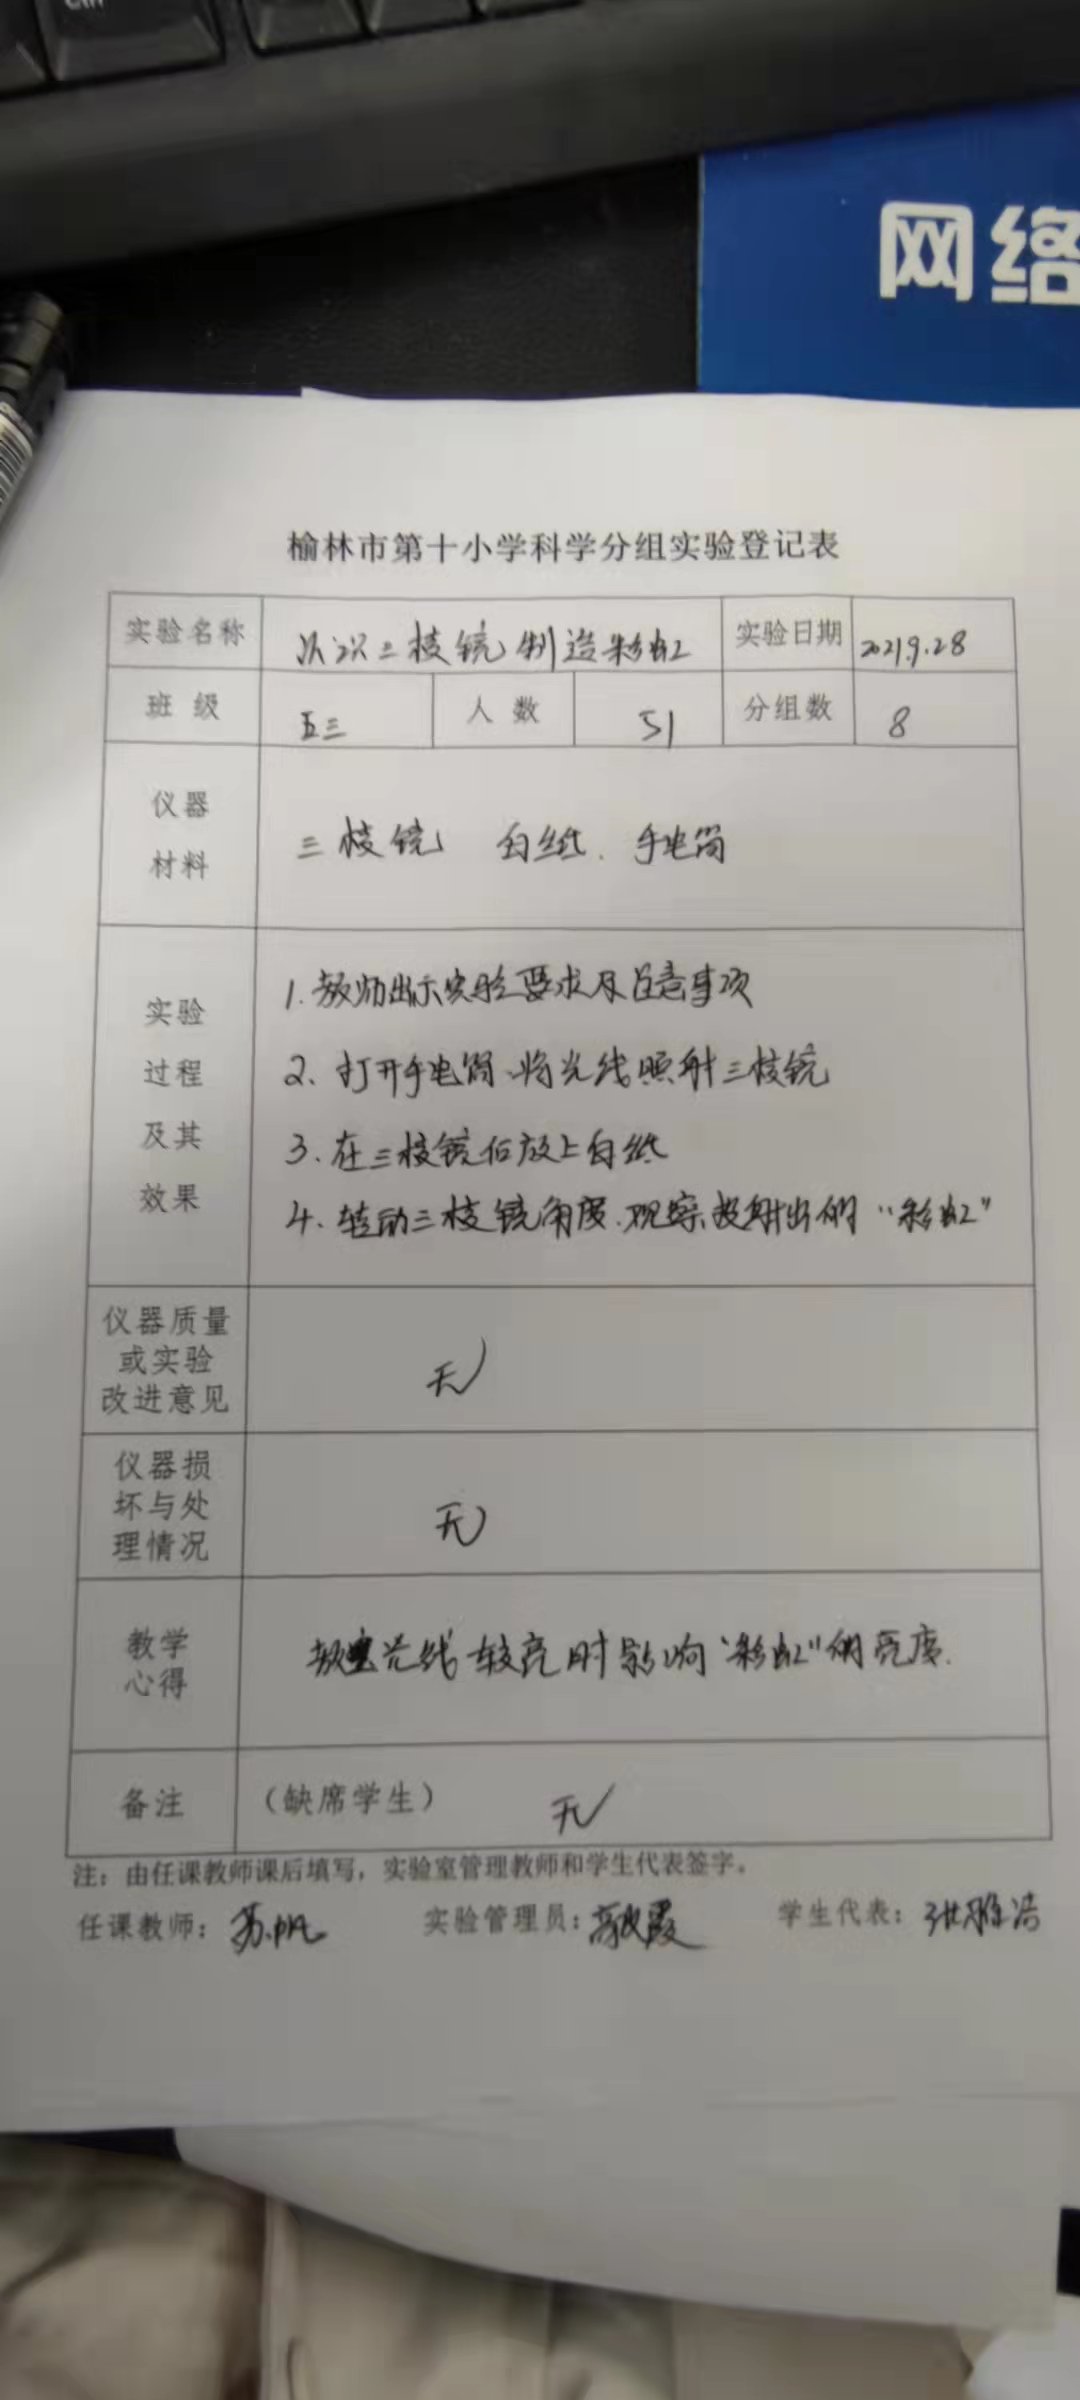 Ctrl
网络
榆林市第十小学科学分组实验登记表
实验名称 认识三棱镜制造彩虹 实验日期 2021.9.28
班级 五三 人数 51 分组数 8
仪器
材料
三棱镜 白纸. 手电筒
实验
过程
及其
效果
1.教师出示实验要求及注意事项
2、打开手电筒、将光线照射三棱镜
3.在三棱镜后放上白纸
4.转动三棱镜角度.观察投射出的“彩虹”
仪器质量
或实验
改进意见
无
仪器损
坏与处
理情况
无
教学
心得
教室光线较亮时影响“彩虹”的亮度.
备注 （缺席学生） 无
注：由任课教师课后填写，实验室管理教师和学生代表签字。
任课教师：苏帆 实验管理员： 学生代表：张雅洁